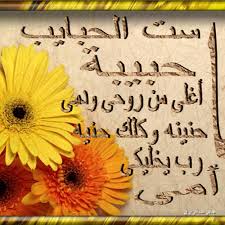 ست الحبايب
حبيبة
أغلى من روحى ودمى
حنينه وكلك حنيه
رب يخليكى
أمى